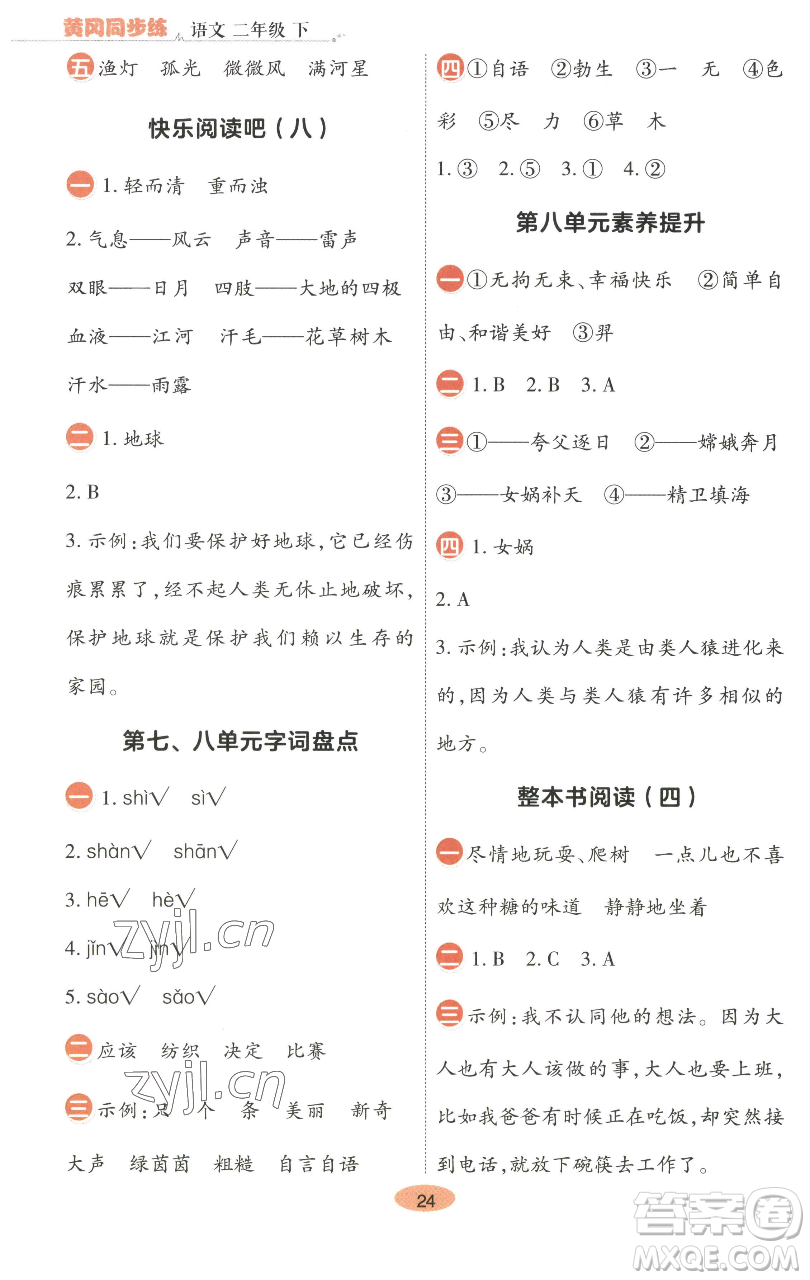 黄冈同步练 语文 二年级 下
五 渔灯 孤光 微微风 满河星
快乐阅读吧(八)
一 1. 轻而清 重而浊
2. 气息——风云 声音——雷声
双眼——日月 四肢——大地的四极
血液——江河 汗毛——花草树木
汗水——雨露
二 1. 地球
2. B
3. 示例:我们要保护好地球,它已经伤
痕累累了,经不起人类无休止地破坏,
保护地球就是保护我们赖以生存的
家园。
第七、八单元字词盘点
一 1. shì√ sì√
2. shàn√ shān√
3. hē√ hè√
4. jǐn√ jìn√
5. sào√ sǎo√
二 应该 纺织 决定 比赛
三 示例:只 个 条 美丽 新奇
大声 绿茵茵 粗糙 自言自语
四 ①自语 ②勃生 ③一 无 ④色
彩 ⑤尽 力 ⑥草 木
1. ③ 2. ⑤ 3. ① 4. ②
第八单元素养提升
一 ①无拘无束、幸福快乐 ②简单自
由、和谐美好 ③羿
二 1. B 2. B 3. A
三 ①——夸父逐日 ②——嫦娥奔月
③——女娲补天 ④——精卫填海
四 1. 女娲
2. A
3. 示例:我认为人类是由类人猿进化来
的,因为人类与类人猿有许多相似的
地方。
整本书阅读(四)
一 尽情地玩耍、爬树 一点儿也不喜
欢这种糖的味道 静静地坐着
二 1. B 2. C 3. A
三 示例:我不认同他的想法。因为大
人也有大人该做的事,大人也要上班,
比如我爸爸有时候正在吃饭,却突然
接到电话,就放下碗筷去工作了。
24
zyjl.cn
zyjl.cn
答案卷
MXQE.COM